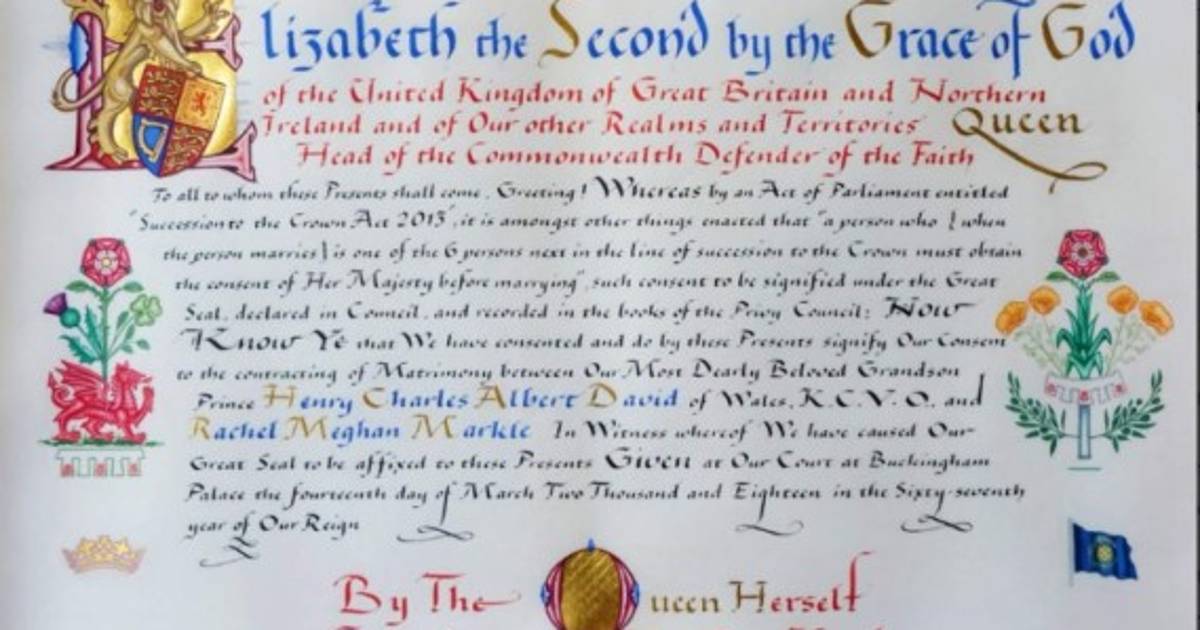 Elizabeth the Second by the Grace of God
of the United Kingdom of Great Britain and Northern
Ireland and of Our other Realms and Territories Queen
Head of the Commonwealth Defender of the Faith
To all to whom these Presents shall come, Greeting! Whereas by an Act of Parliament entitled
"Succession to the Crown Act 2013", it is amongst other things enacted that "a person who { when
the person marries } is one of the 6 persons next in the line of succession to the Crown must obtain
the consent of Her Majesty before marrying", such consent to be signified under the Great
Seal, declared in Council, and recorded in the books of the Privy Council: Now
Know Ye that We have consented and do by these Presents signify Our Consent
to the contracting of Matrimony between Our Most Dearly Beloved Grandson
Prince Henry Charles Albert David of Wales, K.C.V.O., and
Rachel Meghan Markle In Witness whereof We have caused Our
Great Seal to be affixed to these Presents Given at Our Court at Buckingham
Palace the fourteenth day of March Two Thousand and Eighteen in the Sixty-seventh
year of Our Reign
By The Queen Herself